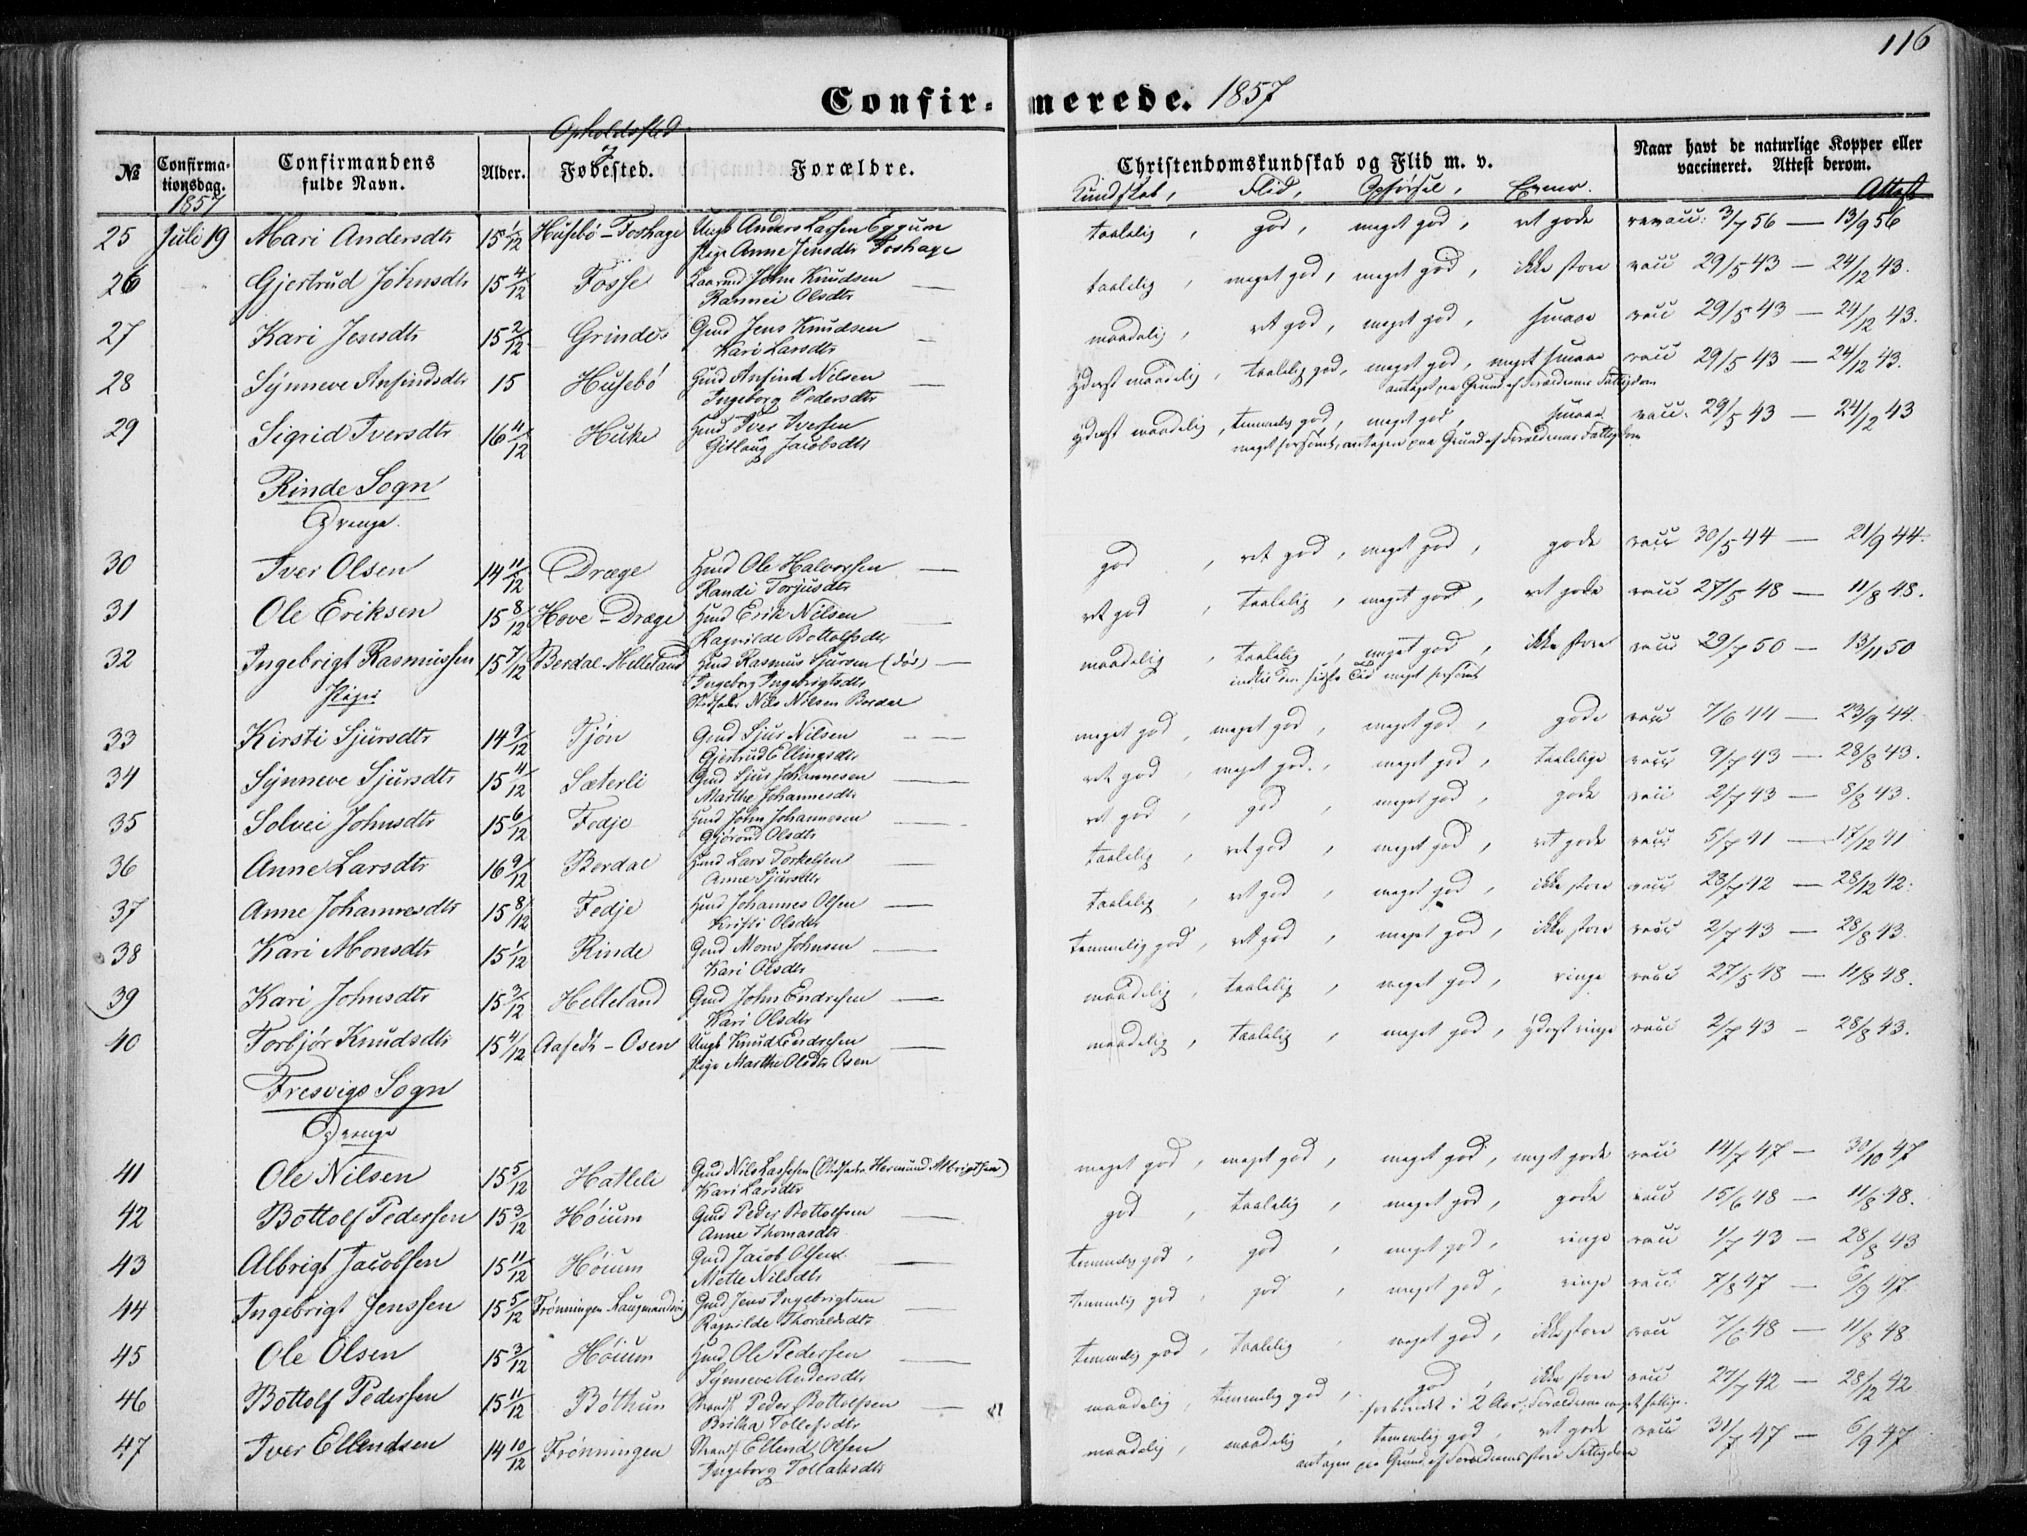 116
Confir- merede. 1857
Opholdssted
№ Confirma- Confirmandens Alder. Fødested. Forældre. Christendomskundskab og Flid m. v. Naar havt de naturlige Kopper eller
tionsdag. fulde Navn. & vaccineret. Attest derom.
1857 Kundskab, Flid, Opførsel, Evner. Attest
25 Juli 19 Mari Andersdtr 15 1/12 Husebö - Foshage Ungk Anders Lassen Eggum taalelig, god, meget god, ret gode revacc: 3/7 56 — 13/9 56
Pige Anne Jensdtr Foshage
26 Gjertrud Johnsdtr 15 4/12 Fosse John Knudsen — taalelig, meget god, meget god, ikke store vacc 29/5 43 — 24/12 43.
Rannei Olsdtr
27 Kari Jensdtr 15 2/12 Grinde Gmd Jens Knudsen maadelig, ret god, meget god, smaae vacc 29/5 43 — 24/12 43.
Kari Larsdtr
28 Synneve Ansindsdtr 15 Husebö Hmd Ansind Nilsen — yderst maadelig, taalelig god, meget god, meget smaae vacc 29/5 43 — 24/12 43.
Ingeborg Pedersdtr antaget paa Grund af Forældrenes Fattigdom
29 Sigrid Iversdtr 16 11/12 Huke Hmd Iver Iversen yderst maadelig, temmelig god, meget god, smaae vacc. 29/5 43 — 24/12 43
Gitlaug Jacobsdtr meget forsömt, antagen paa Grund af Forældrenes Fattigdom
Rinde Sogn
Drenge.
30 Iver Olsen 14 11/12 Dræge Hmd Ole Halvorsen — god, ret god, meget god, gode vacc 30/5 44 — 21/9 44.
Randi Torjusdtr
31 Ole Eriksen 15 8/12 Hove - Dræge Hmd Erik Nilsen — ret god, taalelig, meget god, ret gode vacc 27/5 48 — 11/8 48.
Ragnilde Bottolfsdtr
32 Ingebrigt Rasmussen 15 7/12 Berdal - Helleland Hmd Rasmus Sjursen (död) — maadelig, taalelig, meget god, ikke store vacc 29/7 50 — 13/11 50
Piger Ingeborg Ingebrigtsdtr indtil den sidste Tid meget forsömt
Stedfader Nils Nilsen Berdal
33 Kirsti Sjursdtr 14 9/12 Tjön Gmd Sjur Nilsen — meget god, meget god, meget god, gode vacc 7/6 44 — 23/9 44.
Gjertrud Ellingsdtr
34 Synneve Sjursdtr 15 4/12 Sæterli Gmd Sjur Johannesen — ret god, meget god, meget god, taalelige vacc 9/7 43 — 28/8 43.
Marthe Johannesdtr
35 Solvei Johnsdtr 15 6/12 Fedje Hmd John Johannesen — ret god, god, meget god, gode vacc 2/7 43 — 8/8 43.
Gjörond Olsdtr
36 Anne Larsdtr 16 9/12 Berdal Hmd Lars Torkelsen — taalelig, ret god, meget god, ret gode vacc 5/7 41 — 17/12 41
Anne Sjursdtr
37 Anne Johannesdtr 15 8/12 Fedje Hmd Johannes Olsen — taalelig, ret god, meget god, ikke store vacc 28/7 42 — 28/12 42.
Kristi Olsdtr
38 Kari Monsdtr 15 1/12 Rinde Gmd Mons Johnsen — temmelig god, ret god, meget god, ikke store vacc 2/7 43 — 28/8 43.
Kari Olsdtr
39 Kari Johnsdtr 15 3/12 Helleland Gmd John Endresen — maadelig, taalelig, meget god, ringe vacc 27/5 48 — 11/8 48.
Kari Olsdtr
40 Torbjör Knudsdtr 15 4/12 Aafedt - Osen Ungk Knud Endresen — maadelig, taalelig, meget god, yderst ringe vacc 2/7 43 - 28/8 43.
Pige Marthe Olsdtr Osen
Fresvigs Sogn
Drenge
41 Ole Nilsen 15 5/12 Hatleli Gmd Nils Lassesen (Stedfader Hermund Albrigtsen) meget god, meget god, meget god, meget gode vacc 14/7 47 — 30/10 47
Kari Larsdtr
42 Bottolf Pedersen 15 3/12 Höium Gmd Peder Bottolfsen — god, taalelig, meget god, gode vacc 15/6 48 — 11/8 48.
Anne Thomasdtr
43 Albrigt Jacobsen 15 11/12 Höium Gmd Jacob Olsen — temmelig god, god, meget god, ringe vacc 1/7 43 — 28/8 43
Mette Nilsdtr
44 Ingebrigt Jenssen 15 5/12 Frönningen Gmd Jens Ingebrigtsen — temmelig god, god, meget god, ringe vacc 7/8 47 — 6/9 47.
Ragnilde Thoraldsdtr
45 Ole Olsen 15 3/12 Höium Hmd Ole Pedersen — temmelig god, taalelig, meget god, ikke store vacc 7/6 48 — 11/8 48
Synneve Andersdtr
46 Bottolf Pedersen 15 11/12 Böthun Strands Peder Bottolfsen — maadelig, temmelig god, god, ikke store vacc 27/7 42 — 28/12 42
Britha Tollefsdtr forberedt i 2 Aar, Forældrene meget fattige.
47 Iver Ellendsen 14 10/12 Frönningen Strands Ellend Olsen maadelig, maadelig, temmelig god, ret gode vacc 31/7 47 — 6/9 47
Ingeborg Tollaksdtr antagen paa Grund af Forældrenes store Fattigdom